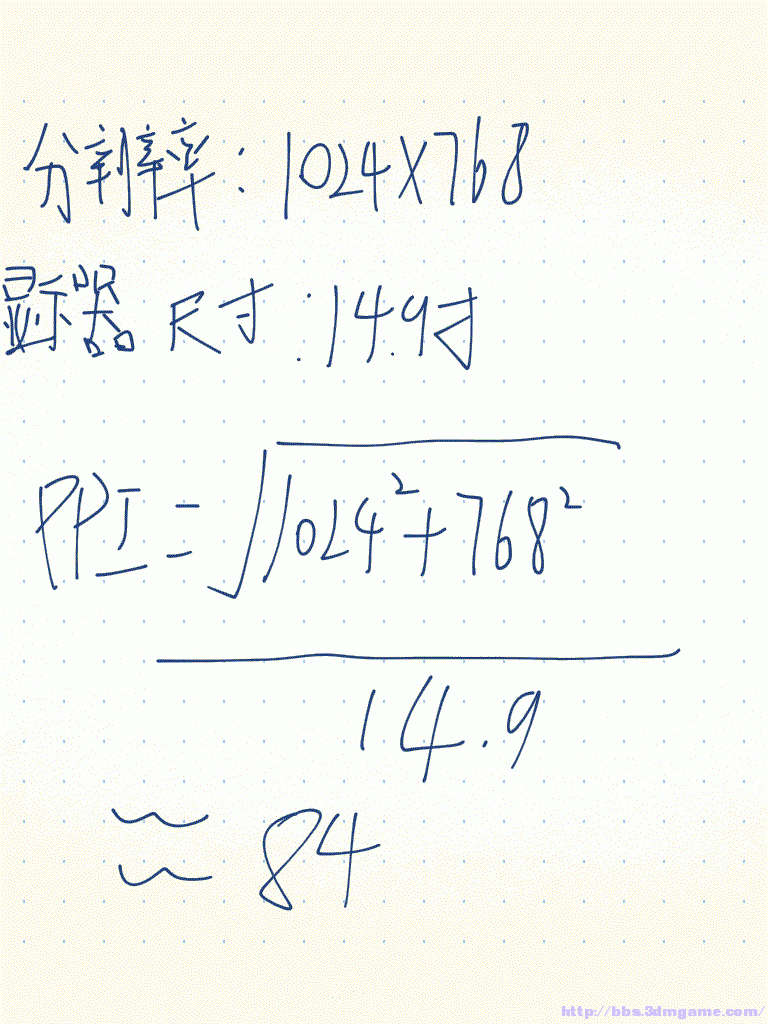 分辨率:1024X768
显示器尺寸:14.9寸
PPI=√1024²+768²
14.9
≈84
http://bbs.3dmgame.com/